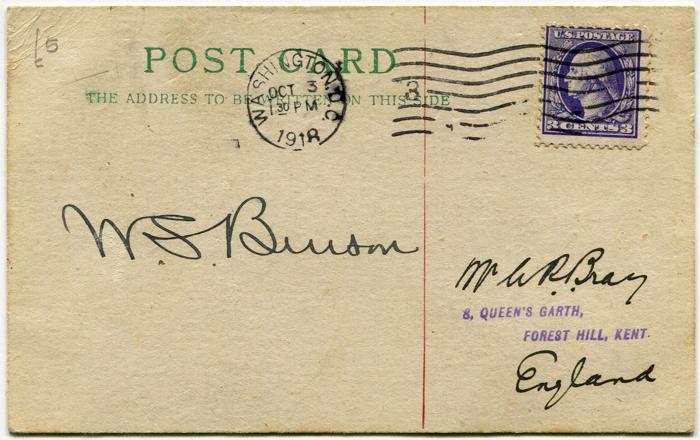 15
POST CARD
THE ADDRESS TO BE WRITTEN ON THIS SIDE
WASHINGTON, D.C.
OCT 3
1 30 PM
1918
3
U.S. POSTAGE
3 CENTS 3
W. S. Benson
Mr W. R. Bray
8, QUEEN'S GARTH,
FOREST HILL, KENT.
England